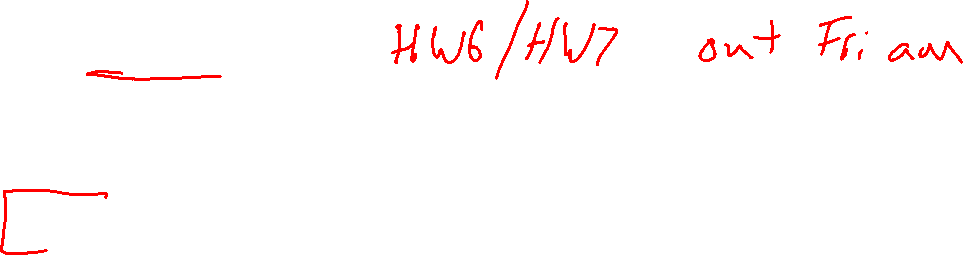 HW6/HW7 out Fri am